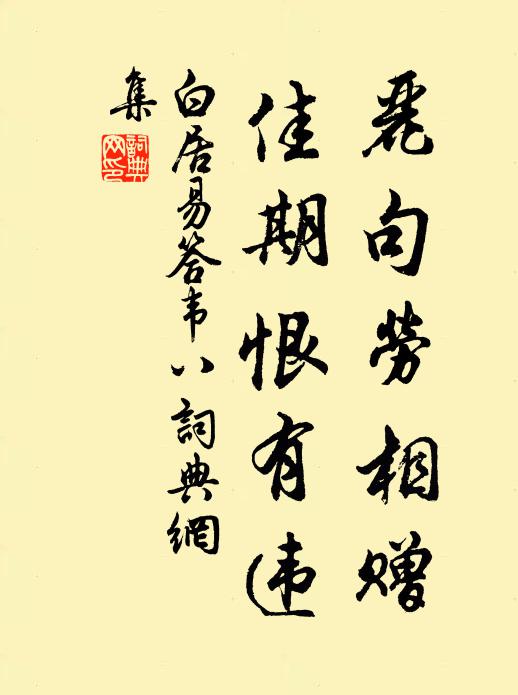 麗句勞相贈
佳期恨有违
白居易答韦八詞典網
集
詞典
网印